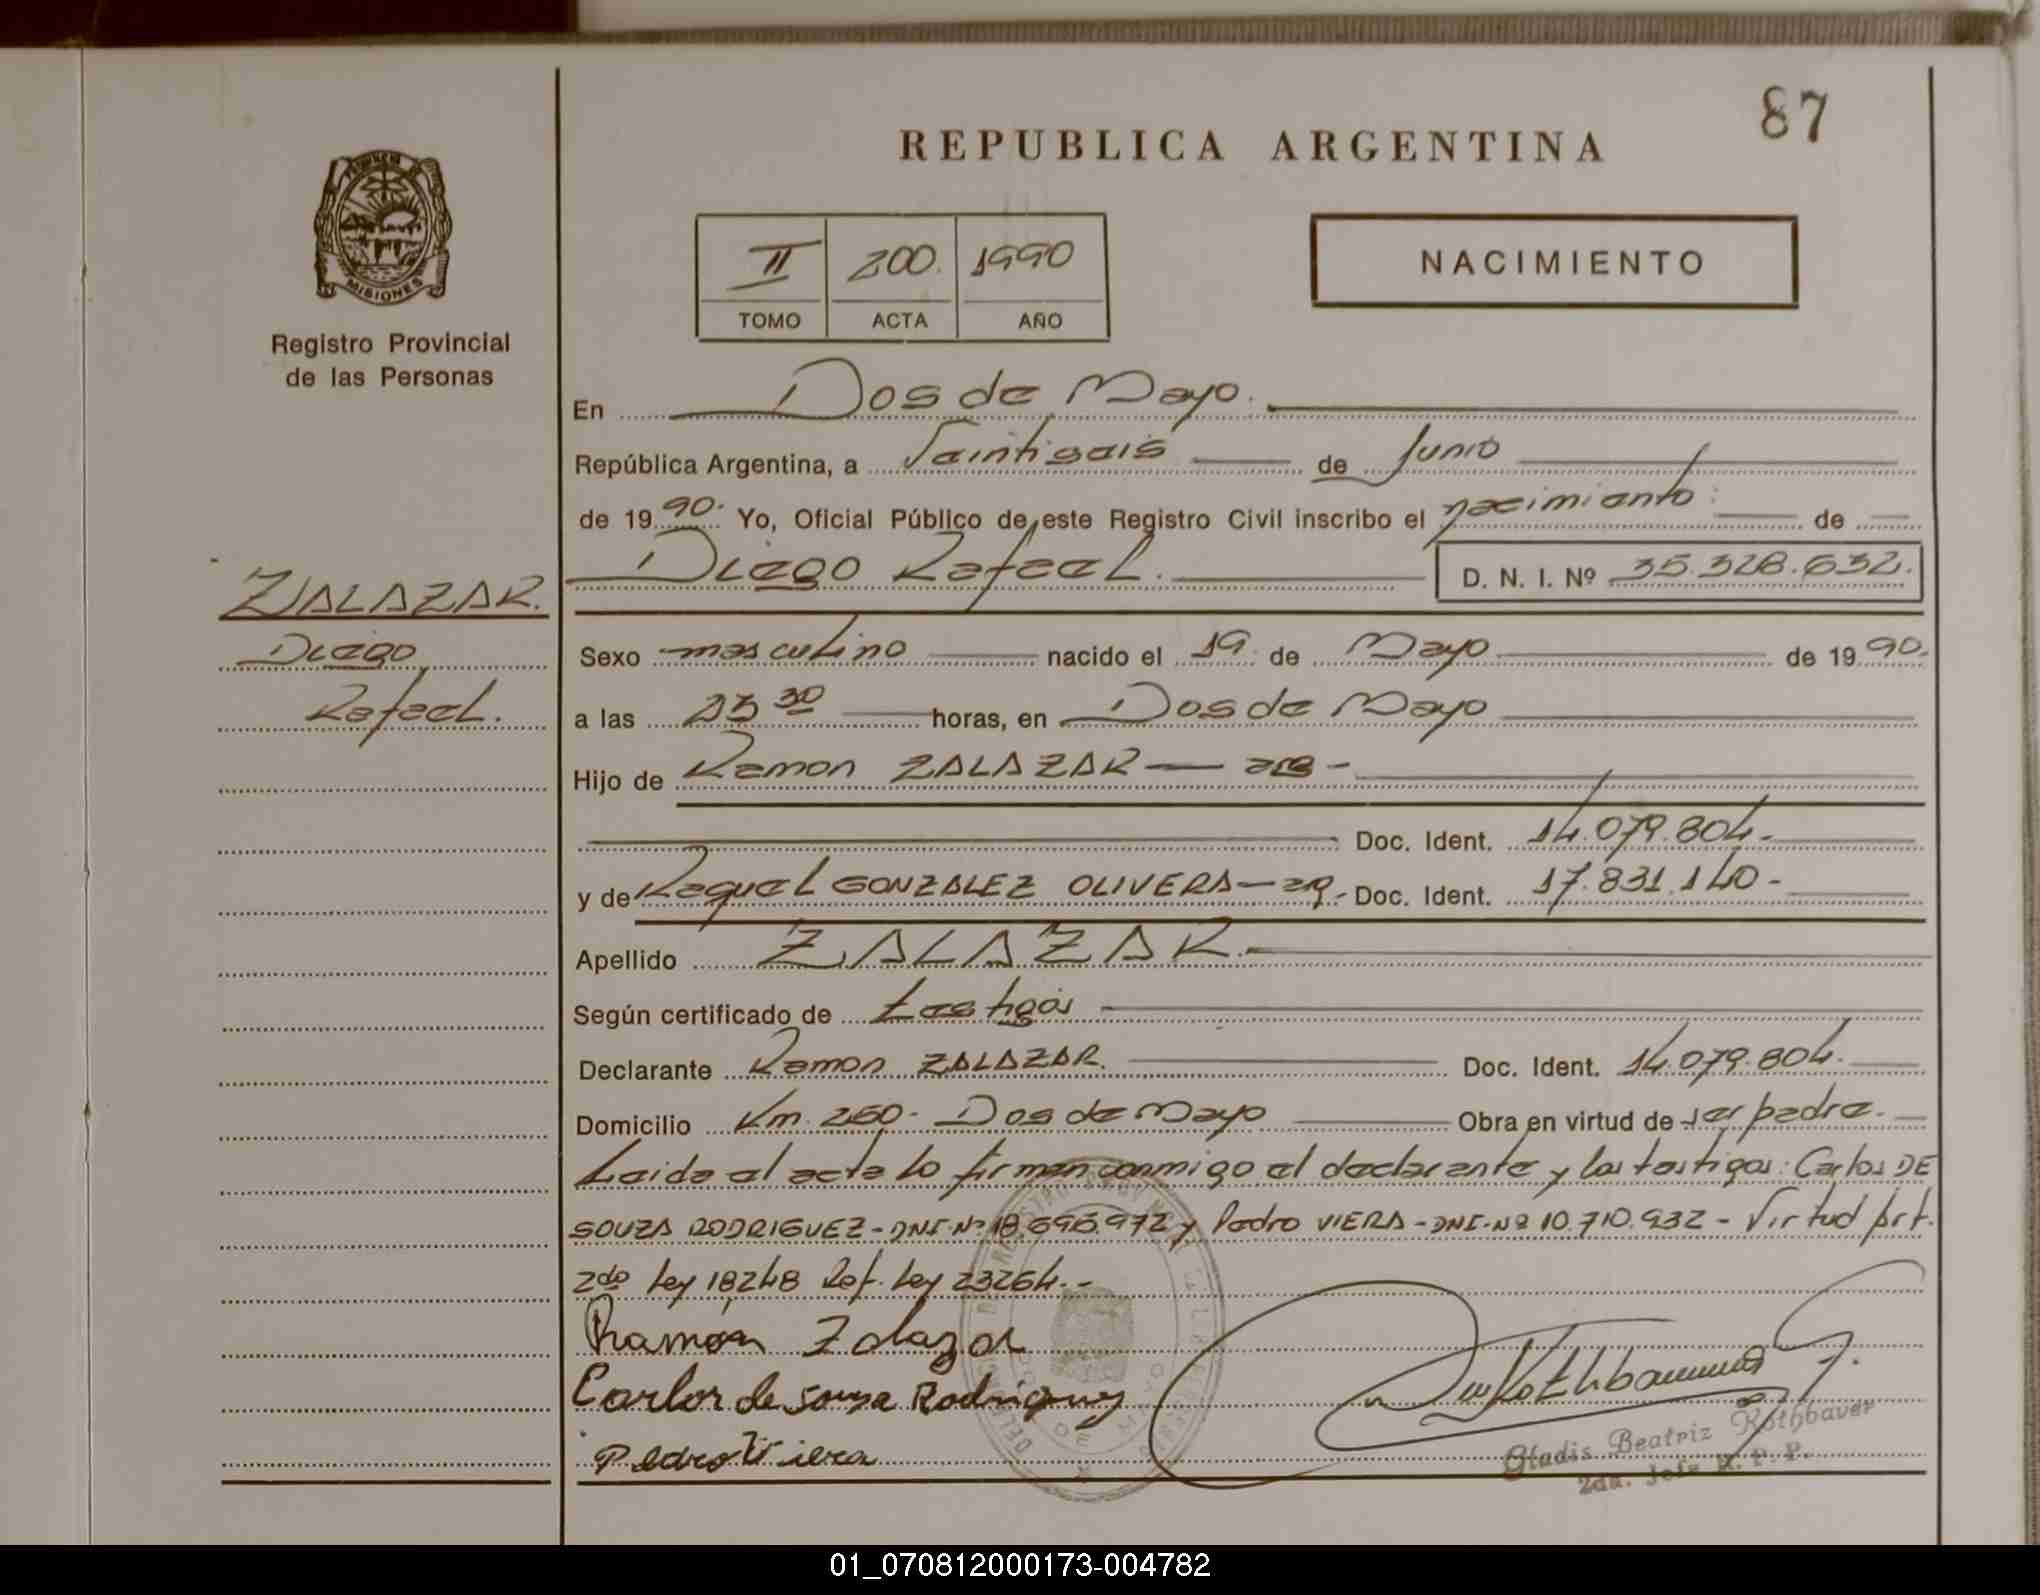 87
REPUBLICA ARGENTINA
PROVINCIA DE
MISIONES
Registro Provincial
de las Personas
II 200. 1990
TOMO ACTA AÑO
NACIMIENTO
En Dos de Mayo.
República Argentina, a Veintiseis de Junio
de 1990. Yo, Oficial Público de este Registro Civil inscribo el nacimiento: de
Diego Rafael. D. N. I. Nº 35.328.632.
ZALAZAR.
Diego
Rafael.
Sexo masculino nacido el 19 de Mayo de 1990.
a las 23 30 horas, en Dos de Mayo
Hijo de Ramon ZALAZAR — arg -
Doc. Ident. 14.079.804-
y de Raquel GONZALEZ OLIVERA — arg.- Doc. Ident. 17.831.140-
Apellido ZALAZAR.
Según certificado de testigos
Declarante Ramon ZALAZAR. Doc. Ident. 14.079.804.
Domicilio Km. 260- Dos de Mayo Obra en virtud de ser padre.
Leida el acta lo firman conmigo el declarante y los testigos: Carlos DE
SOUZA RODRIGUEZ - DNI-Nº 18.696.972 y Pedro VIERA - DNI-Nº 10.710.932 - Virtud Art.
2do Ley 18248 Ref. Ley 23264.-
Ramón Zalazar
Carlos de Souza Rodriguez
Pedro Viera
Rothbauer G.
Gladis Beatriz Rothbauer
2da. Jefe R. P. P.
01_070812000173-004782